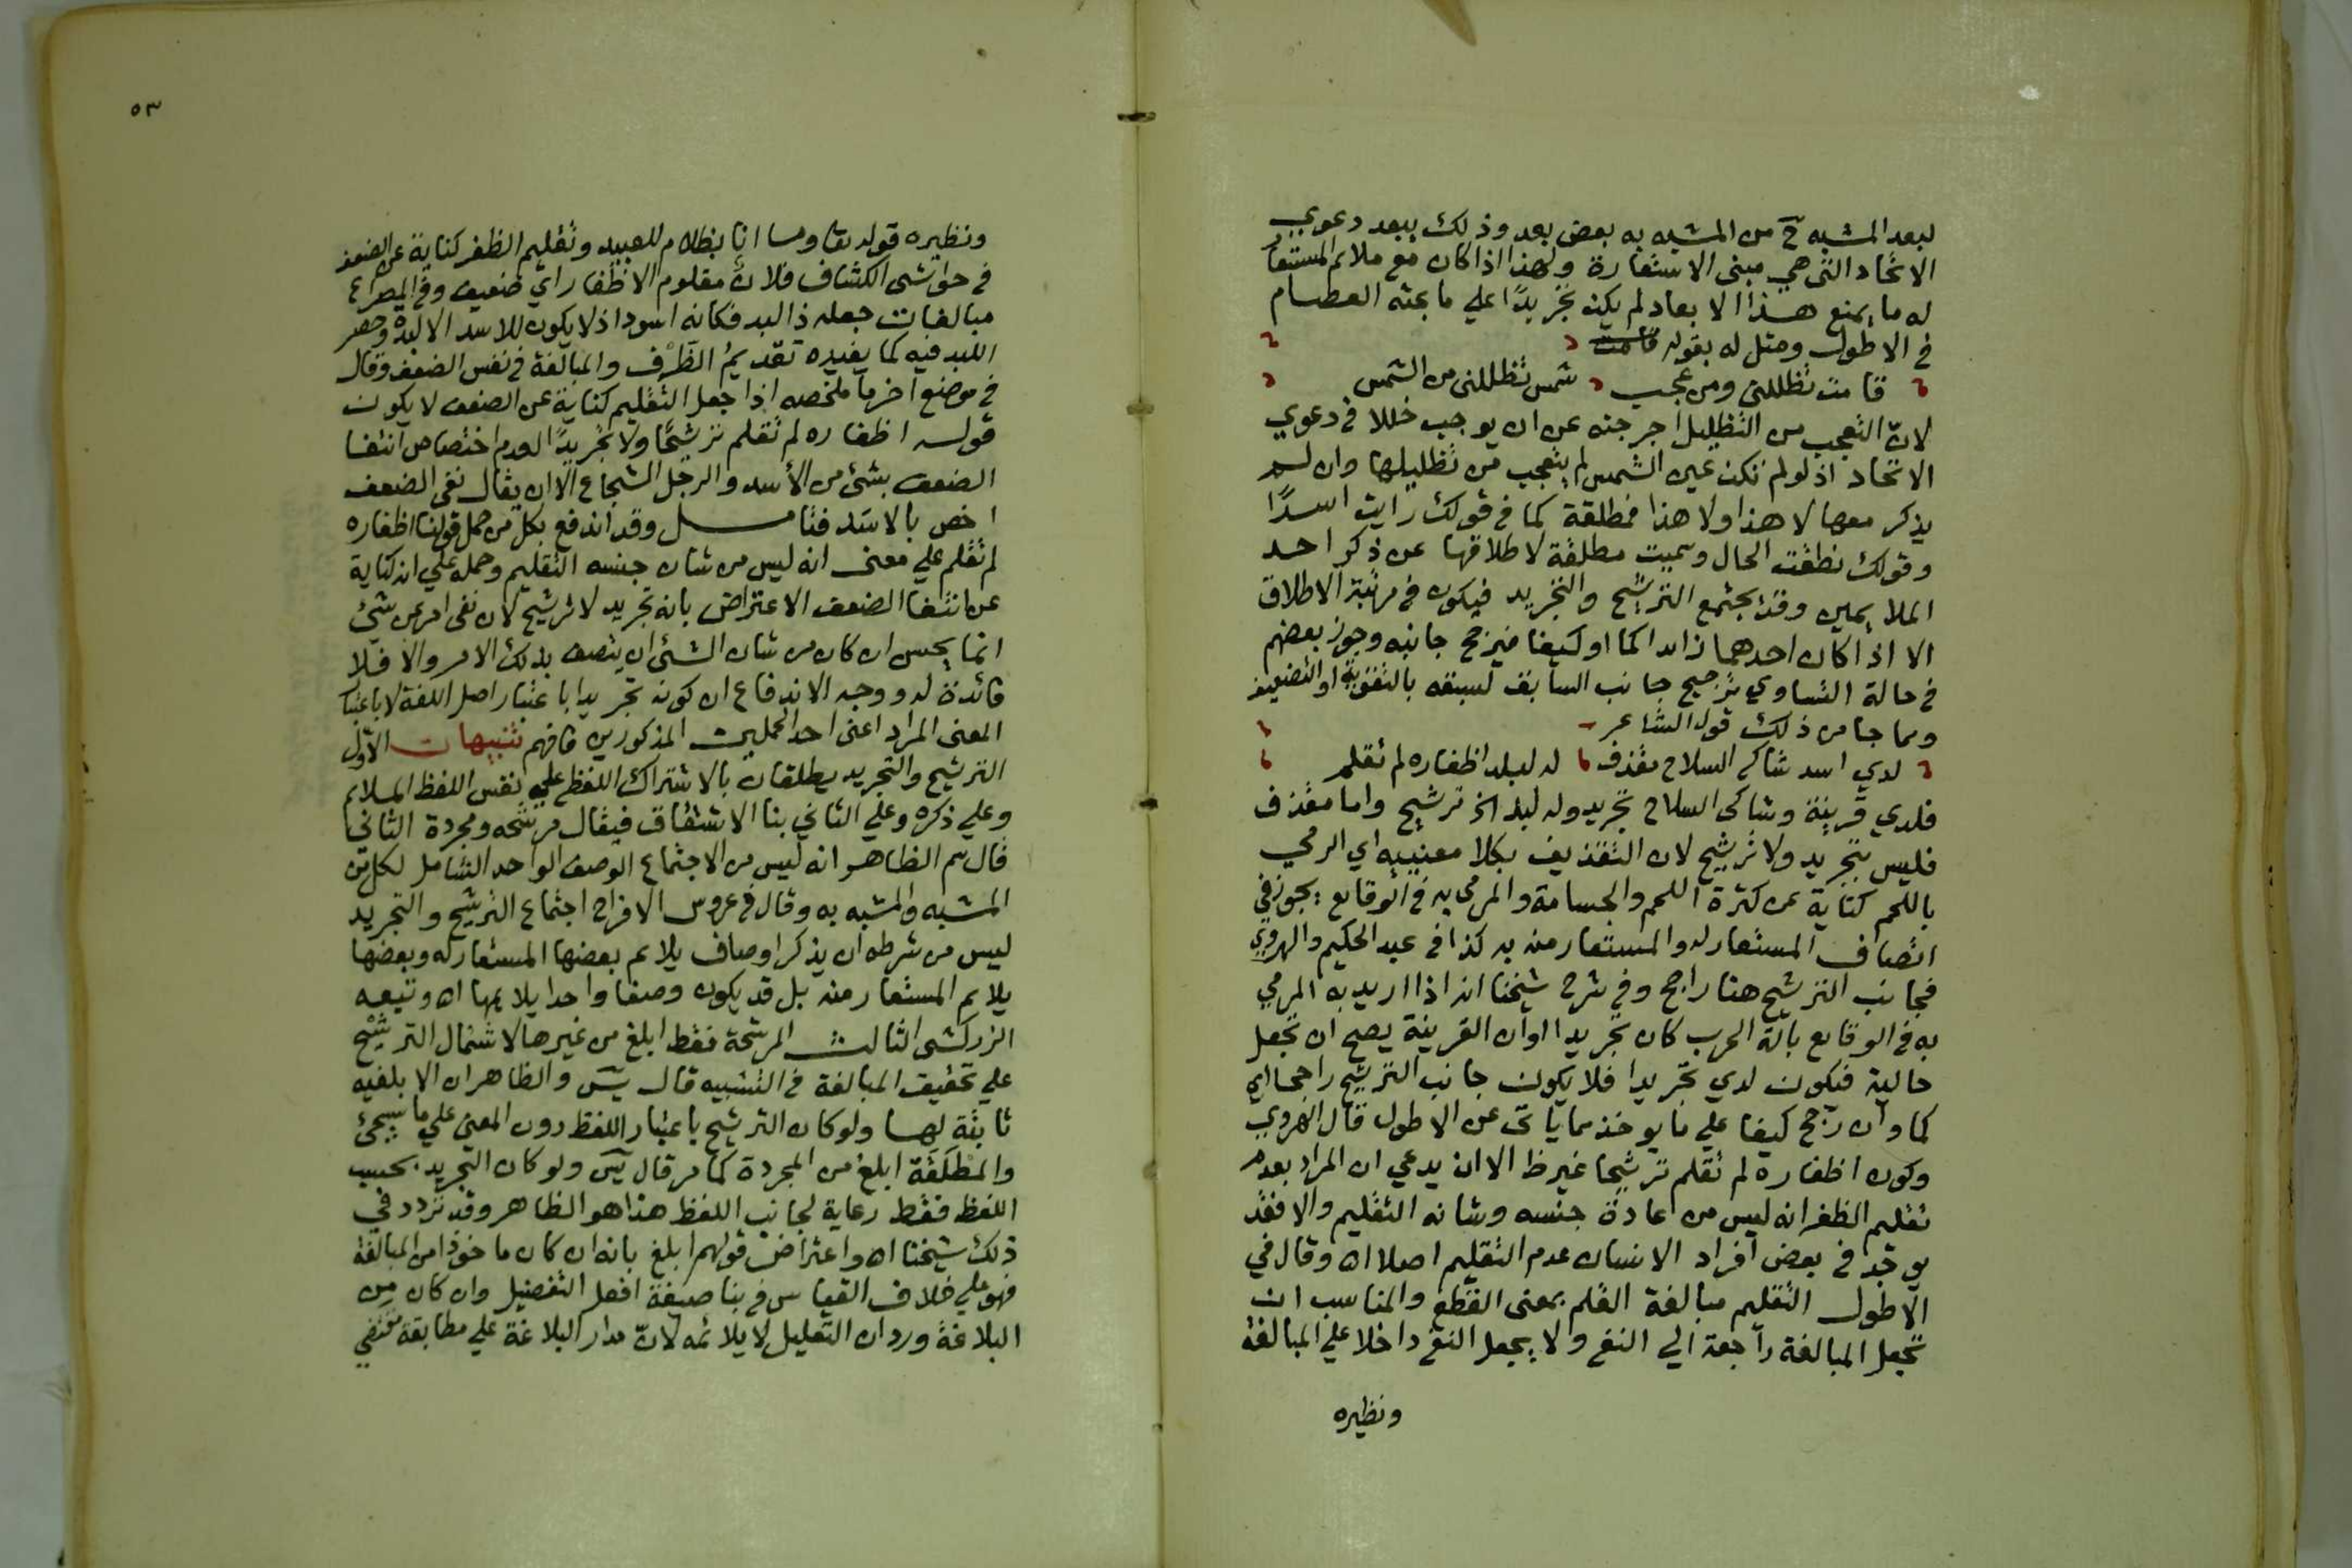 لبعد المشبه ح من المشبه به بعض بعد وذلك يبعد دعوي
الاتحاد التي هي مبنى الاستعارة ولهذا اذا كان مع ملائم المستعار
له ما يمنع هذا الابعاد لم يكن تجريدًا علي ما بحثه العصام
في الاطول ومثل له بقوله قامت
قامت تظللني ومن عجب شمس تظللني من الشمس
لانّ التعجب من التظليل اخرجته عن ان يوجب خللا في دعوي
الاتحاد اذ لو لم تكن عين الشمس لم يتعجب من تظليلها وان لم
يذكر معها لا هذا ولا هذا فمطلقة كما في قولك رايت اسدًا
وقولك نطقت الحال وسميت مطلقة لاطلاقها عن ذكر احد
الملايمين وقد يجتمع الترشيح والتجريد فيكون في مرتبة الاطلاق
الا اذا كان احدهما زائدا كما او كيفا فيرجح جانبه وجوز بعضهم
في حالة التساوي ترجيح جانب السابق لسبقه بالتقوية او التضعيف
ومما جا من ذلك قول الشاعر
لدي اسد شاكي السلاح مقذف له لبد اظفاره لم تقلم
فلدي قرينة وشاكى السلاح تجريد وله لبد الخ ترشيح واما مقذف
فليس بتجريد ولا ترشيح لان التقذيف بكلا معنييه اي الرمي
باللحم كناية عن كثرة اللحم والجسامة والمرمى به في الوقايع يجوز في
اتصاف المستعار له والمستعار منه به كذا في عبد الحكيم والهروي
فجانب الترشيح هنا راجح وفي شرح شيخنا انه اذا اريد به المرمي
به في الوقايع بآلة الحرب كان تجريدا اوان القرينة يصح ان تجعل
حالية فيكون لدي تجريدا فلا يكون جانب الترشيح راجحا اي
كما وان رجح كيفا علي ما يوخذ مما ياتى عن الاطول قال الهروي
وكون اظفاره لم تقلم ترشيحا غير ظ الا ان يدعي ان المراد بعدم
تقليم الظفر انه ليس من عادة جنسه وشانه التقليم والا فقد
يوجد في بعض افراد الانسان عدم التقليم اصلا اه وقال في
الاطول التقليم مبالغة القلم بمعنى القطع والمناسب ان
تجعل المبالغة راجعة الي النفي ولا يجعل النفي داخلا علي المبالغة
ونظيره
٥٣
ونظيره قوله تعا وما انا بظلام للعبيد وتقليم الظفر كناية عن الضعف
في حواشى الكشاف فلانٌ مقلوم الاظفار اي ضعيف وفي المصراع
مبالغات جعله ذا لبد فكانه اسود اذ لا يكون للاسد الا لبدة وحصر
اللبد فيه كما يفيده تقديمُ الظَرْف والمبالغة في نفس الضعف وقال
في موضع اخر ما ملخصه اذا جعل التقليم كناية عن الضعف لا يكون
قوله اظفاره لم تقلم ترشيحًا ولا تجريدًا لعدم اختصاص انتفا
الضعف بشئ من الأسد والرجل الشجاع الا ان يقال نفي الضعف
اخص بالاسَد فتامل وقد اندفع بكل من حمل قولنا اظفاره
لم تقلم علي معنى انه ليس من شان جنسه التقليم وحمله علي انه كناية
عن انتفا الضعف الاعتراض بانه تجريد لا ترشيح لان نفى امر عن شئ
انما يحسن ان كان من شان الشئ ان يتصف بذلك الامر والا فلا
فائدة له ووجه الاندفاع ان كونه تجريدا باعتبار اصل اللغة لا باعتبار
المعنى المراد اعنى احد الحملين المذكورين فافهم تنبيهات الاوّل
الترشيح والتجريد يطلقان بالاشتراك اللفظي علي نفس اللفظ الملائم
وعلي ذكره وعلي الثاني بنا الاشتقاق فيقال مرشحه ومجردة الثاني
قال سم الظاهر انه ليس من الاجتماع الوصف الواحد الشامل لكل من
المشبه والمشبه به وقال في عروس الافراح اجتماع الترشيح والتجريد
ليس من شرطه ان يذكر اوصاف يلائم بعضها المستعار له وبعضها
يلايم المستعار منه بل قد يكون وصفا واحدا يلايمها اه وتبعه
الزركشى الثالث المرشحة فقط ابلغ من غيرها لاشتمال الترشيْح
علي تحقيق المبالغة في التشبيه قال يسَ والظاهر ان الابلغيه
ثابتة لها ولو كان الترشيح باعتبار اللفظ دون المعنى علي ما سيجئ
والمطلَقة ابلغ من المجردة كما مر قال يسَ ولو كان التجريد بحسب
اللفظ فقط رعاية لجانب اللفظ هذا هو الظاهر وقد تردد في
ذلك شيخنا اه واعتراض قولهم ابلغ بانه ان كان ماخوذا من المبالغة
فهو علي خلاف القياس في بنا صيغة افعل التفضيل وان كان من
البلاغة ورد ان التعليل لا يلائمه لانّ مدار البلاغة علي مطابقة مقتضي